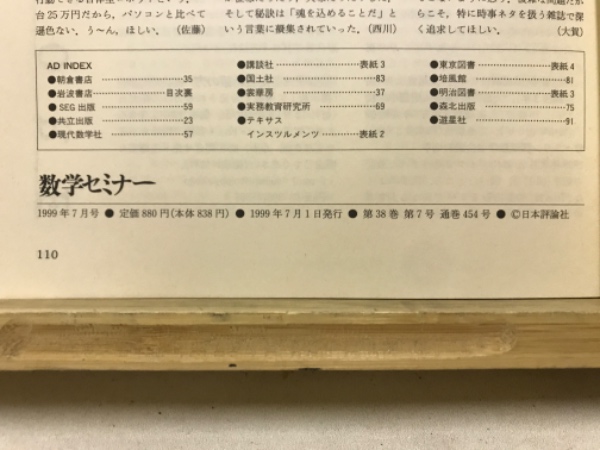 台25万円だから，パソコンと比べて
遜色ない．う～ん，ほしい．（佐藤）
そして秘訣は「魂を込めることだ」と
いう言葉に凝集されていった．（西川）
らこそ，特に時事ネタを扱う雑誌で深
く追求してほしい．（大賀）
AD INDEX
●朝倉書店 35
●岩波書店 目次裏
●SEG出版 59
●共立出版 23
●現代数学社 57
●講談社 表紙3
●国土社 83
●裳華房 37
●実務教育研究所 69
●テキサス
インスツルメンツ 表紙2
●東京図書 表紙4
●培風館 81
●明治図書 表紙3
●森北出版 75
●遊星社 91
数学セミナー
1999年7月号 ● 定価880円（本体838円） ● 1999年7月1日発行 ● 第38巻 第7号 通巻454号 ● ©日本評論社
110